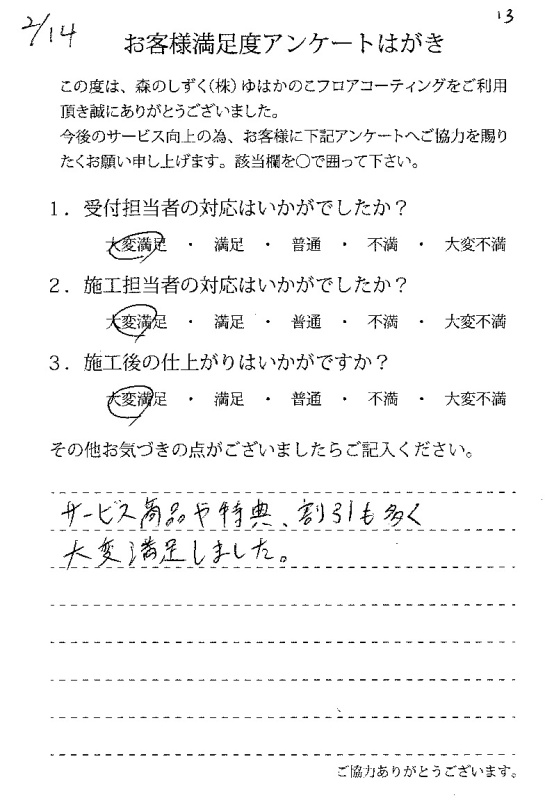 2/14
13
お客様満足度アンケートはがき
この度は、森のしずく(株)ゆはかのこフロアコーティングをご利用
頂き誠にありがとうございました。
今後のサービス向上の為、お客様に下記アンケートへご協力を賜り
たくお願い申し上げます。該当欄を〇で囲って下さい。
1．受付担当者の対応はいかがでしたか？
大変満足 ・ 満足 ・ 普通 ・ 不満 ・ 大変不満
2．施工担当者の対応はいかがでしたか？
大変満足 ・ 満足 ・ 普通 ・ 不満 ・ 大変不満
3．施工後の仕上がりはいかがですか？
大変満足 ・ 満足 ・ 普通 ・ 不満 ・ 大変不満
その他お気づきの点がございましたらご記入ください。
サービス商品や特典、割引も多く
大変満足しました。
ご協力ありがとうございます。